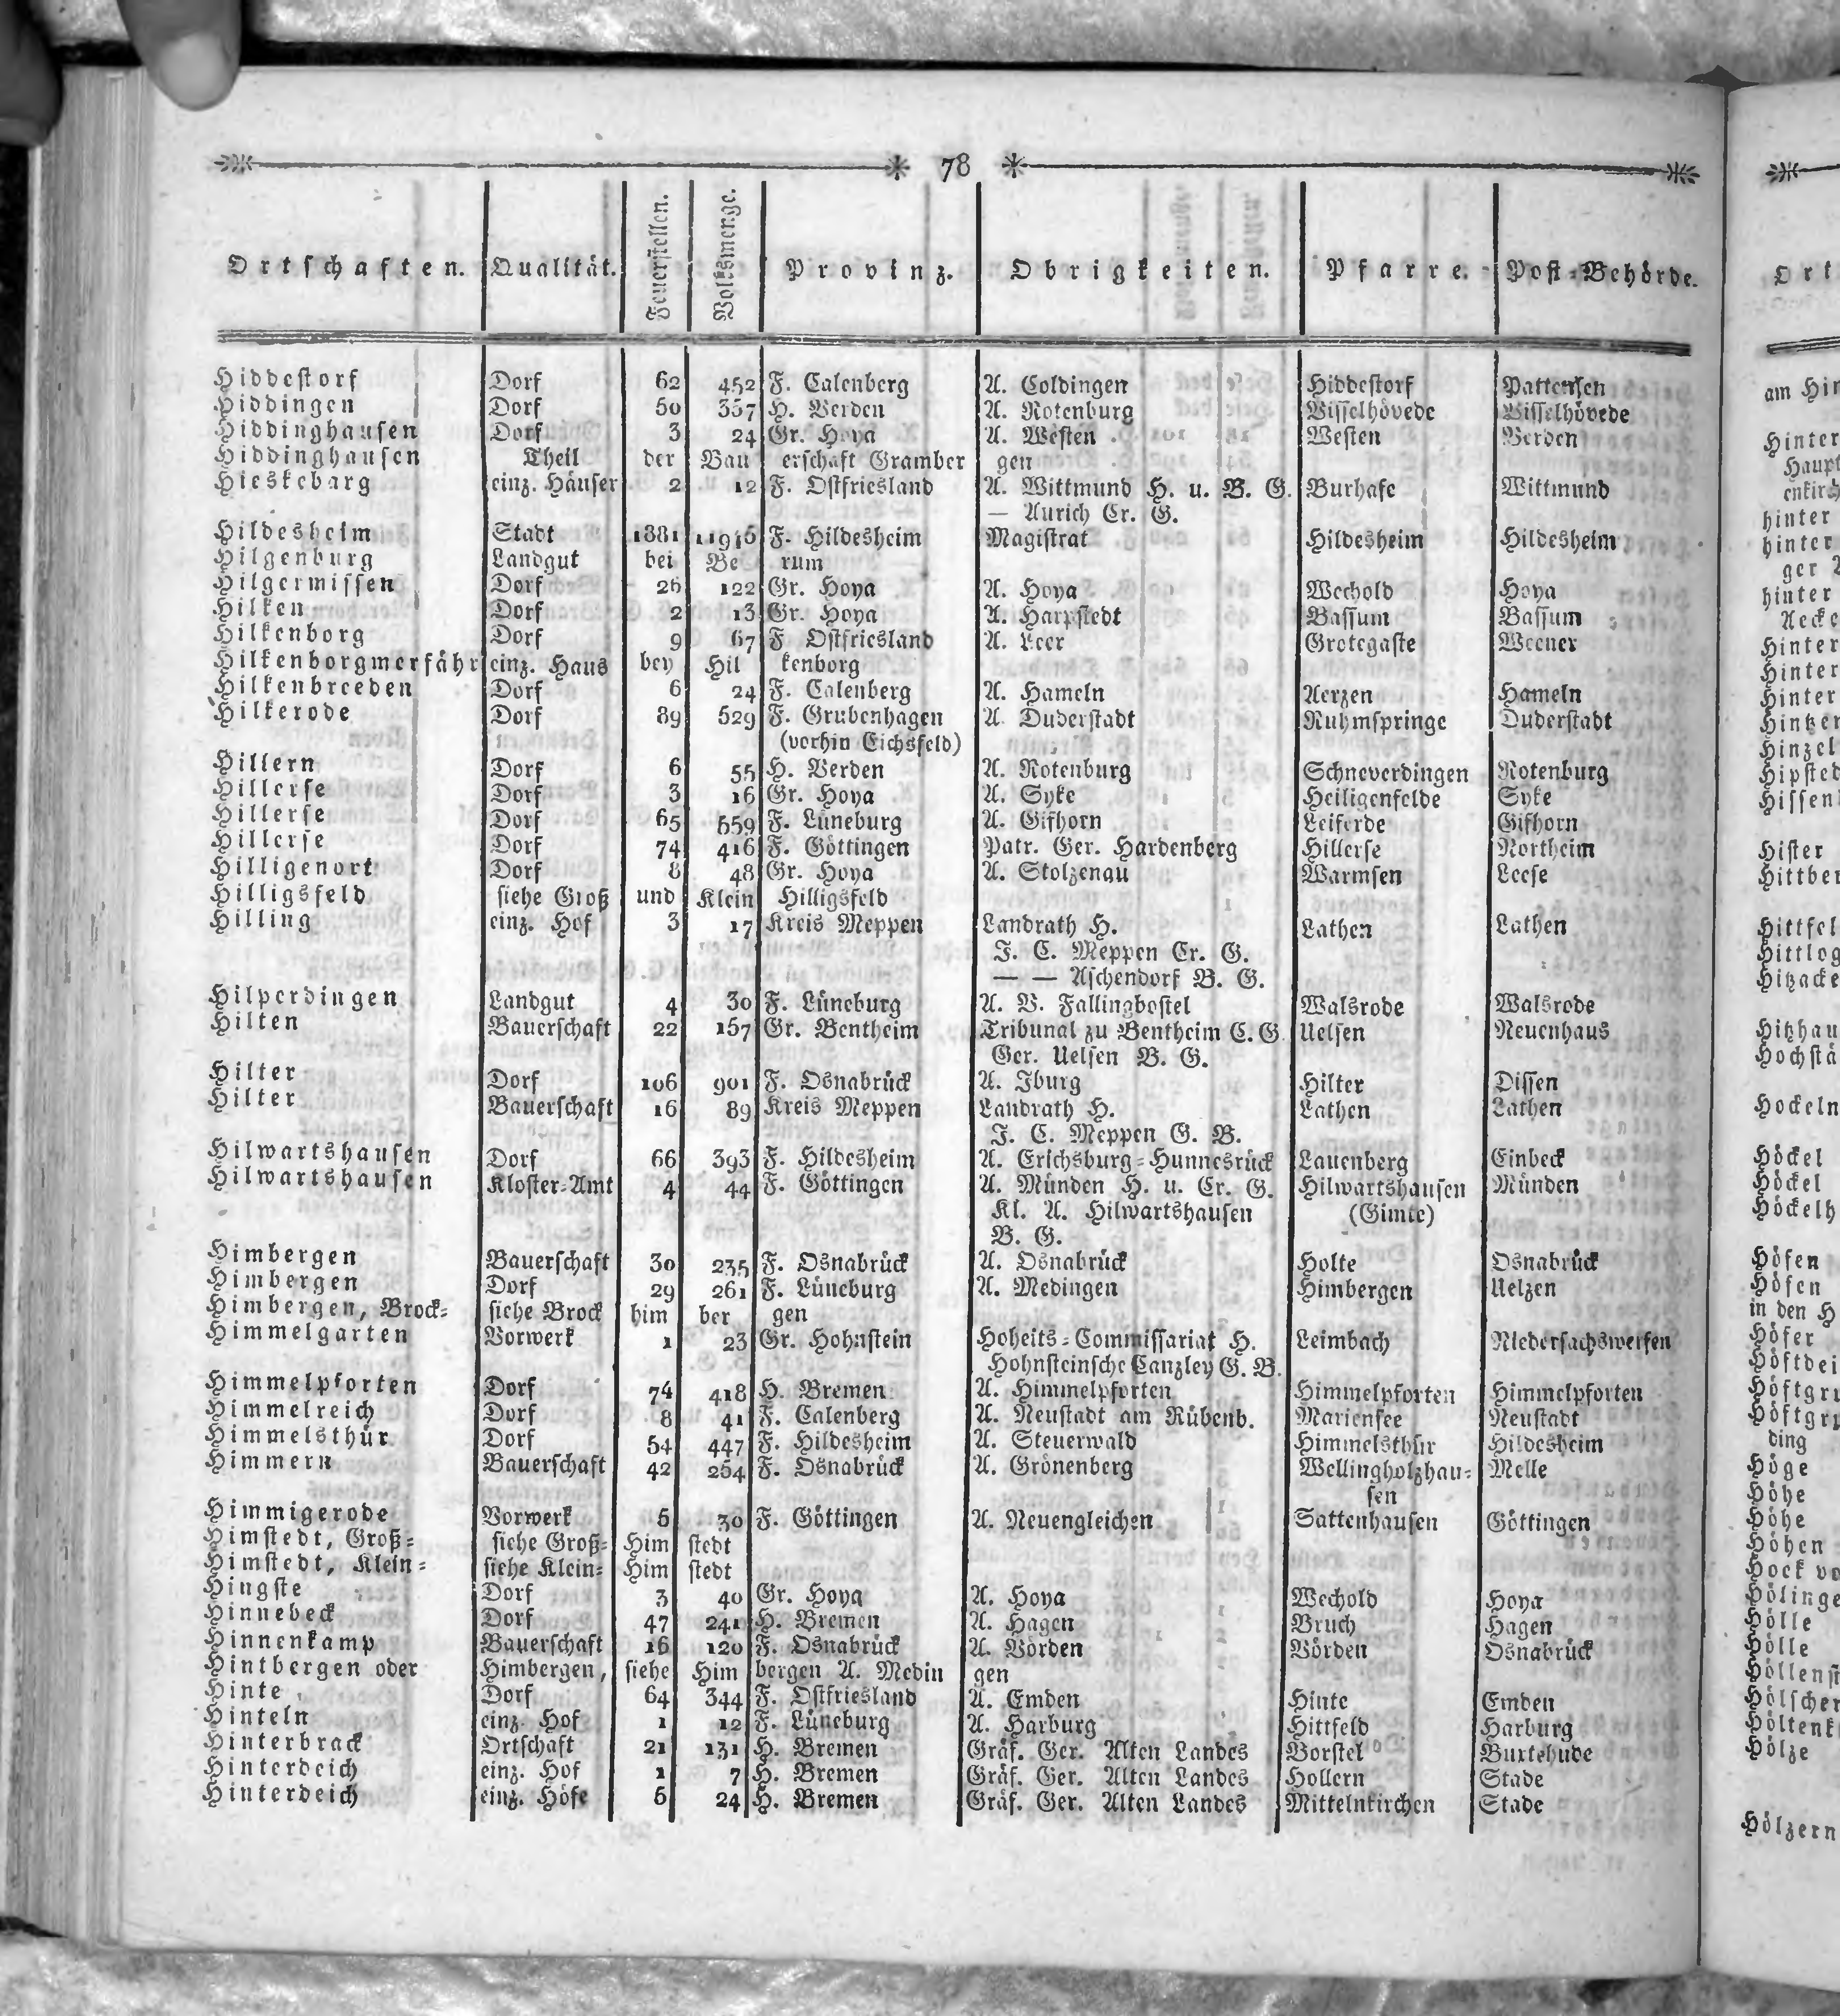 78
Ortschaften. Qualität. Feuerstellen. Volksmenge. Provinz. Obrigkeiten. Pfarre. Post-Behörde.
Hiddestorf Dorf 62 452 F. Calenberg A. Coldingen Hiddestorf Pattensen
Hiddingen Dorf 50 357 H. Verden A. Rotenburg Visselhövede Visselhövede
Hiddinghausen Dorf 3 24 Gr. Hoya A. Westen Westen Verden
Hiddinghausen Theil der Bau erschaft Gramber gen
Hieskebarg einz. Häuser 2 12 F. Ostfriesland A. Wittmund H. u. B. G. Burhafe Wittmund
— Aurich Cr. G.
Hildesheim Stadt 1881 F. Hildesheim Magistrat Hildesheim Hildesheim
Hilgenburg Landgut bei Be rum
Hilgermissen Dorf 26 122 Gr. Hoya A. Hoya Wechold Hoya
Hilken Dorf 2 13 Gr. Hoya A. Harpstedt Bassum Bassum
Hilkenborg Dorf 9 67 F Ostfriesland A. Leer Grotegaste Weener
Hilkenborgmerfähr einz. Haus bey Hil kenborg
Hilkenbreeden Dorf 6 24 F. Calenberg A. Hameln Aerzen Hameln
Hilkerode Dorf 89 529 F. Grubenhagen A. Duderstadt Ruhmspringe Duderstadt
(vorhin Eichsfeld)
Hillern Dorf 6 55 H. Verden A. Rotenburg Schneverdingen Rotenburg
Hillerse Dorf 3 16 Gr. Hoya A. Syke Heiligenfelde Syke
Hillerse Dorf 65 559 F. Lüneburg A. Gifhorn Leiferde Gifhorn
Hillerse Dorf 74 416 F. Göttingen Patr. Ger. Hardenberg Hillerse Northeim
Hilligenort Dorf 8 48 Gr. Hoya A. Stolzenau Warmsen Leese
Hilligsfeld siehe Groß und Klein Hilligsfeld
Hilling einz. Hof 3 17 Kreis Meppen Landrath H. Lathen Lathen
J. C. Meppen Cr. G.
— — Aschendorf B. G.
Hilperdingen Landgut 4 30 F. Lüneburg A. V. Fallingbostel Walsrode Walsrode
Hilten Bauerschaft 22 157 Gr. Bentheim Tribunal zu Bentheim C. G Uelsen Neuenhaus
Ger. Uelsen B. G.
Hilter Dorf 106 901 F. Osnabrück A. Iburg Hilter Dissen
Hilter Bauerschaft 16 89 Kreis Meppen Landrath H. Lathen Lathen
J. C. Meppen G. B.
Hilwartshausen Dorf 66 393 F. Hildesheim A. Erichsburg-Hunnesrück Lauenberg Einbeck
Hilwartshausen Kloster-Amt 4 44 F. Göttingen A. Münden H. u. Cr. G. Hilwartshausen Münden
Kl. A. Hilwartshausen (Gimte)
B. G.
Himbergen Bauerschaft 30 235 F. Osnabrück A. Osnabrück Holte Osnabrück
Himbergen Dorf 29 261 F. Lüneburg A. Medingen Himbergen Uelzen
Himbergen, Brock- siehe Brock him ber gen
Himmelgarten Vorwerk 1 23 Gr. Hohnstein Hoheits-Commissariat H. Leimbach Niedersachswerfen
Hohnsteinsche Canzley G. B.
Himmelpforten Dorf 74 418 H. Bremen A. Himmelpforten Himmelpforten Himmelpforten
Himmelreich Dorf 8 41 F. Calenberg A. Neustadt am Rübenb. Mariensee Neustadt
Himmelsthür Dorf 54 447 F. Hildesheim A. Steuerwald Himmelsthür Hildesheim
Himmern Bauerschaft 42 254 F. Osnabrück A. Grönenberg Wellingholzhau- Melle
sen
Himmigerode Vorwerk 5 30 F. Göttingen A. Neuengleichen Sattenhausen Göttingen
Himstedt, Groß- siehe Groß- Him stedt
Himstedt, Klein- siehe Klein- Him stedt
Hingste Dorf 3 40 Gr. Hoya A. Hoya Wechold Hoya
Hinnebeck Dorf 47 241 H. Bremen A. Hagen Bruch Hagen
Hinnenkamp Bauerschaft 16 120 F. Osnabrück A. Vörden Vörden Osnabrück
Hintbergen oder Himbergen, siehe Him bergen A. Medin gen
Hinte Dorf 64 344 F. Ostfriesland A. Emden Hinte Emden
Hinteln einz. Hof 1 12 F. Lüneburg A. Harburg Hittfeld Harburg
Hinterbrack Ortschaft 21 131 H. Bremen Gräf. Ger. Alten Landes Borstel Buxtehude
Hinterdeich einz. Hof 1 7 H. Bremen Gräf. Ger. Alten Landes Hollern Stade
Hinterdeich einz. Höfe 5 24 H. Bremen Gräf. Ger. Alten Landes Mittelnkirchen Stade
Ort
am Hin
Hinter
Haupt
enkirch
hinter
hinter
ger
hinter
Aecke
Hinter
Hinter
Hinter
Hintzer
Hinzel
Hipsted
Hissen
Hister
Hittber
Hittfel
Hittlog
Hitzacke
Hitzhau
Hochstä
Hockeln
Höckel
Höckel
Höckelh
Höfen
Höfen
in den H
Höfer
Höftdei
Höftgru
Höftgru
ding
Höge
Höhe
Höhe
Höhen
Hoek vo
Hölinge
Hölle
Hölle
Höllenst
Hölscher
Höltenk
Hölze
Hölzern